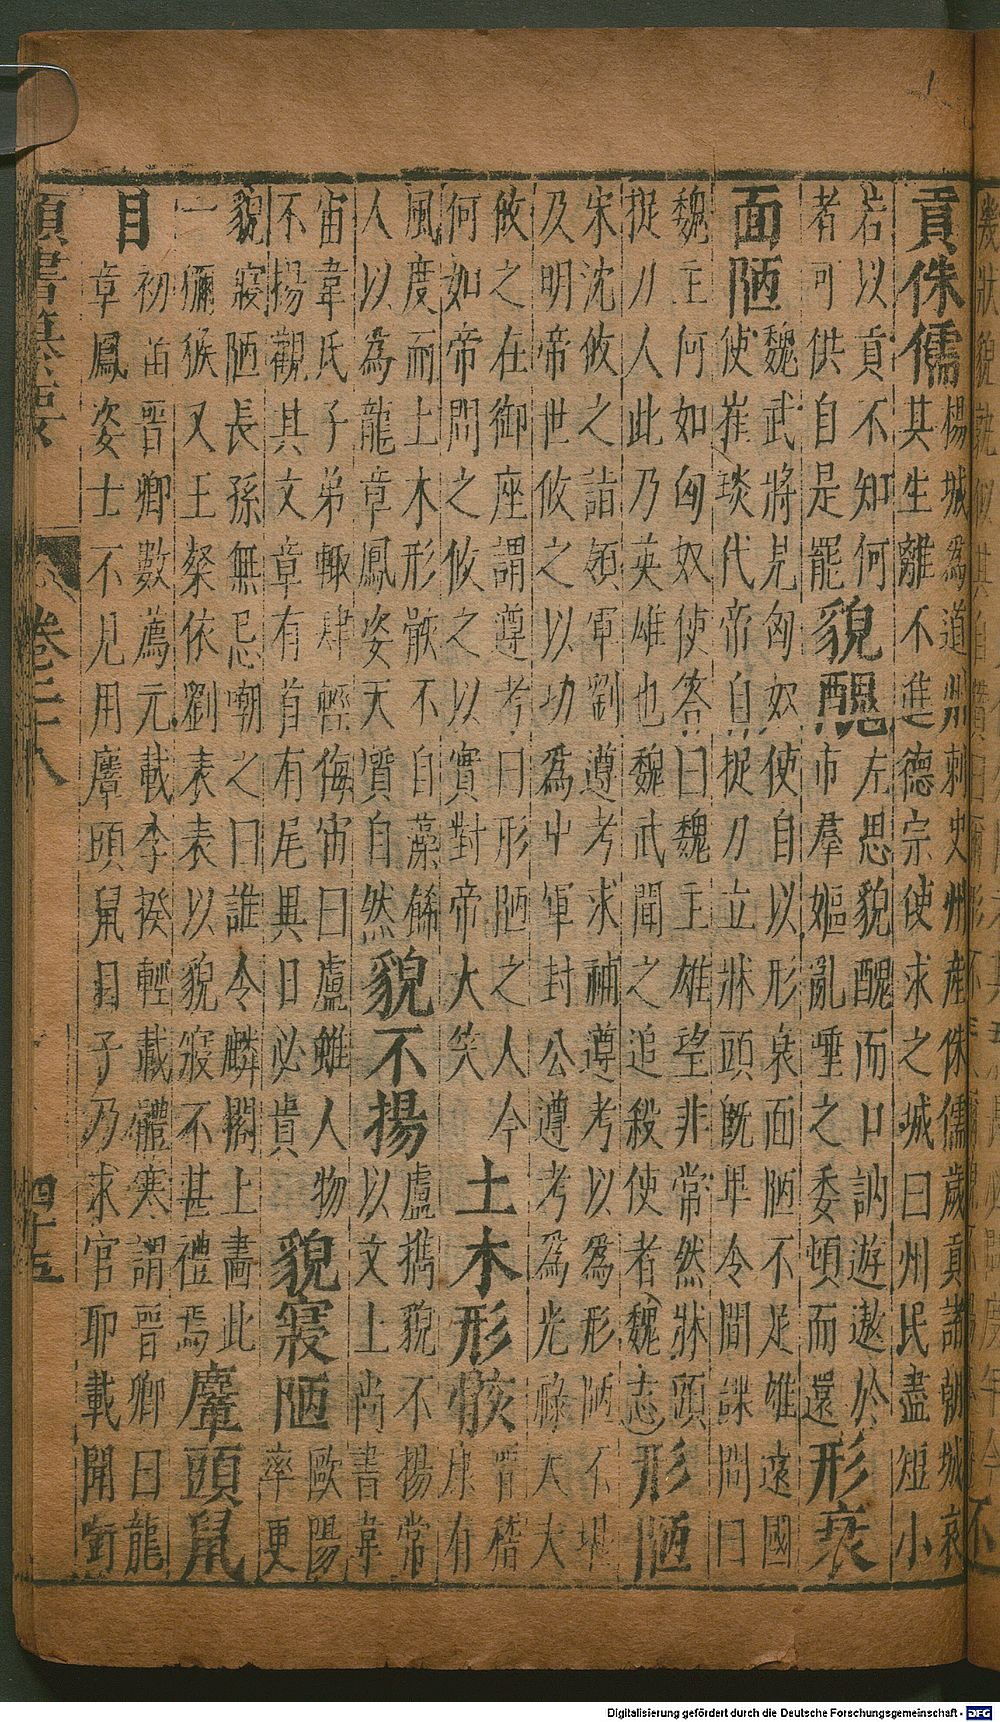 貢侏儒
楊城為道州刺史州産侏儒歲貢諸朝城哀
其生離不進德宗使求之城曰州民盡短小
若以貢不知何
者可供自是罷
貌醜
左思貌醜而口訥遊遨於
市羣嫗亂唾之委頓而還
形衰
面陋
魏武將見匈奴使自以形衰面陋不足雄遠國
使崔琰代帝自捉刀立牀頭既畢令間諜問曰
魏主何如匈奴使答曰魏主雄望非常然牀頭
捉刀人此乃英雄也魏武聞之追殺使者(魏志)
形陋
宋沈攸之詣領軍劉遵考求補遵考以為形陋不堪
及明帝世攸之以功為中軍封公遵考為光祿大夫
攸之在御座謂遵考曰形陋之人今
何如帝問之攸之以實對帝大笑
土木形骸
晉嵇
康有
風度而土木形骸不自藻餙
人以為龍章鳳姿天質自然
貌不揚
盧擕貌不揚常
以文上尚書韋
宙韋氏子弟輙肆輕侮宙曰盧雖人物
不揚觀其文章有首有尾異日必貴
貌寢陋
歐陽
率更
貌寢陋長孫無忌嘲之曰誰令麟閣上畵此
一獼猴又王粲依劉表表以貌寢不甚禮焉
麞頭鼠
目
初苗晉卿數薦元載李揆輕載體寒謂晉卿曰龍
章鳳姿士不見用麞頭鼠目子乃求官耶載聞銜
類書纂要
卷二十八
四十五
Digitalisierung gefördert durch die Deutsche Forschungsgemeinschaft - DFG